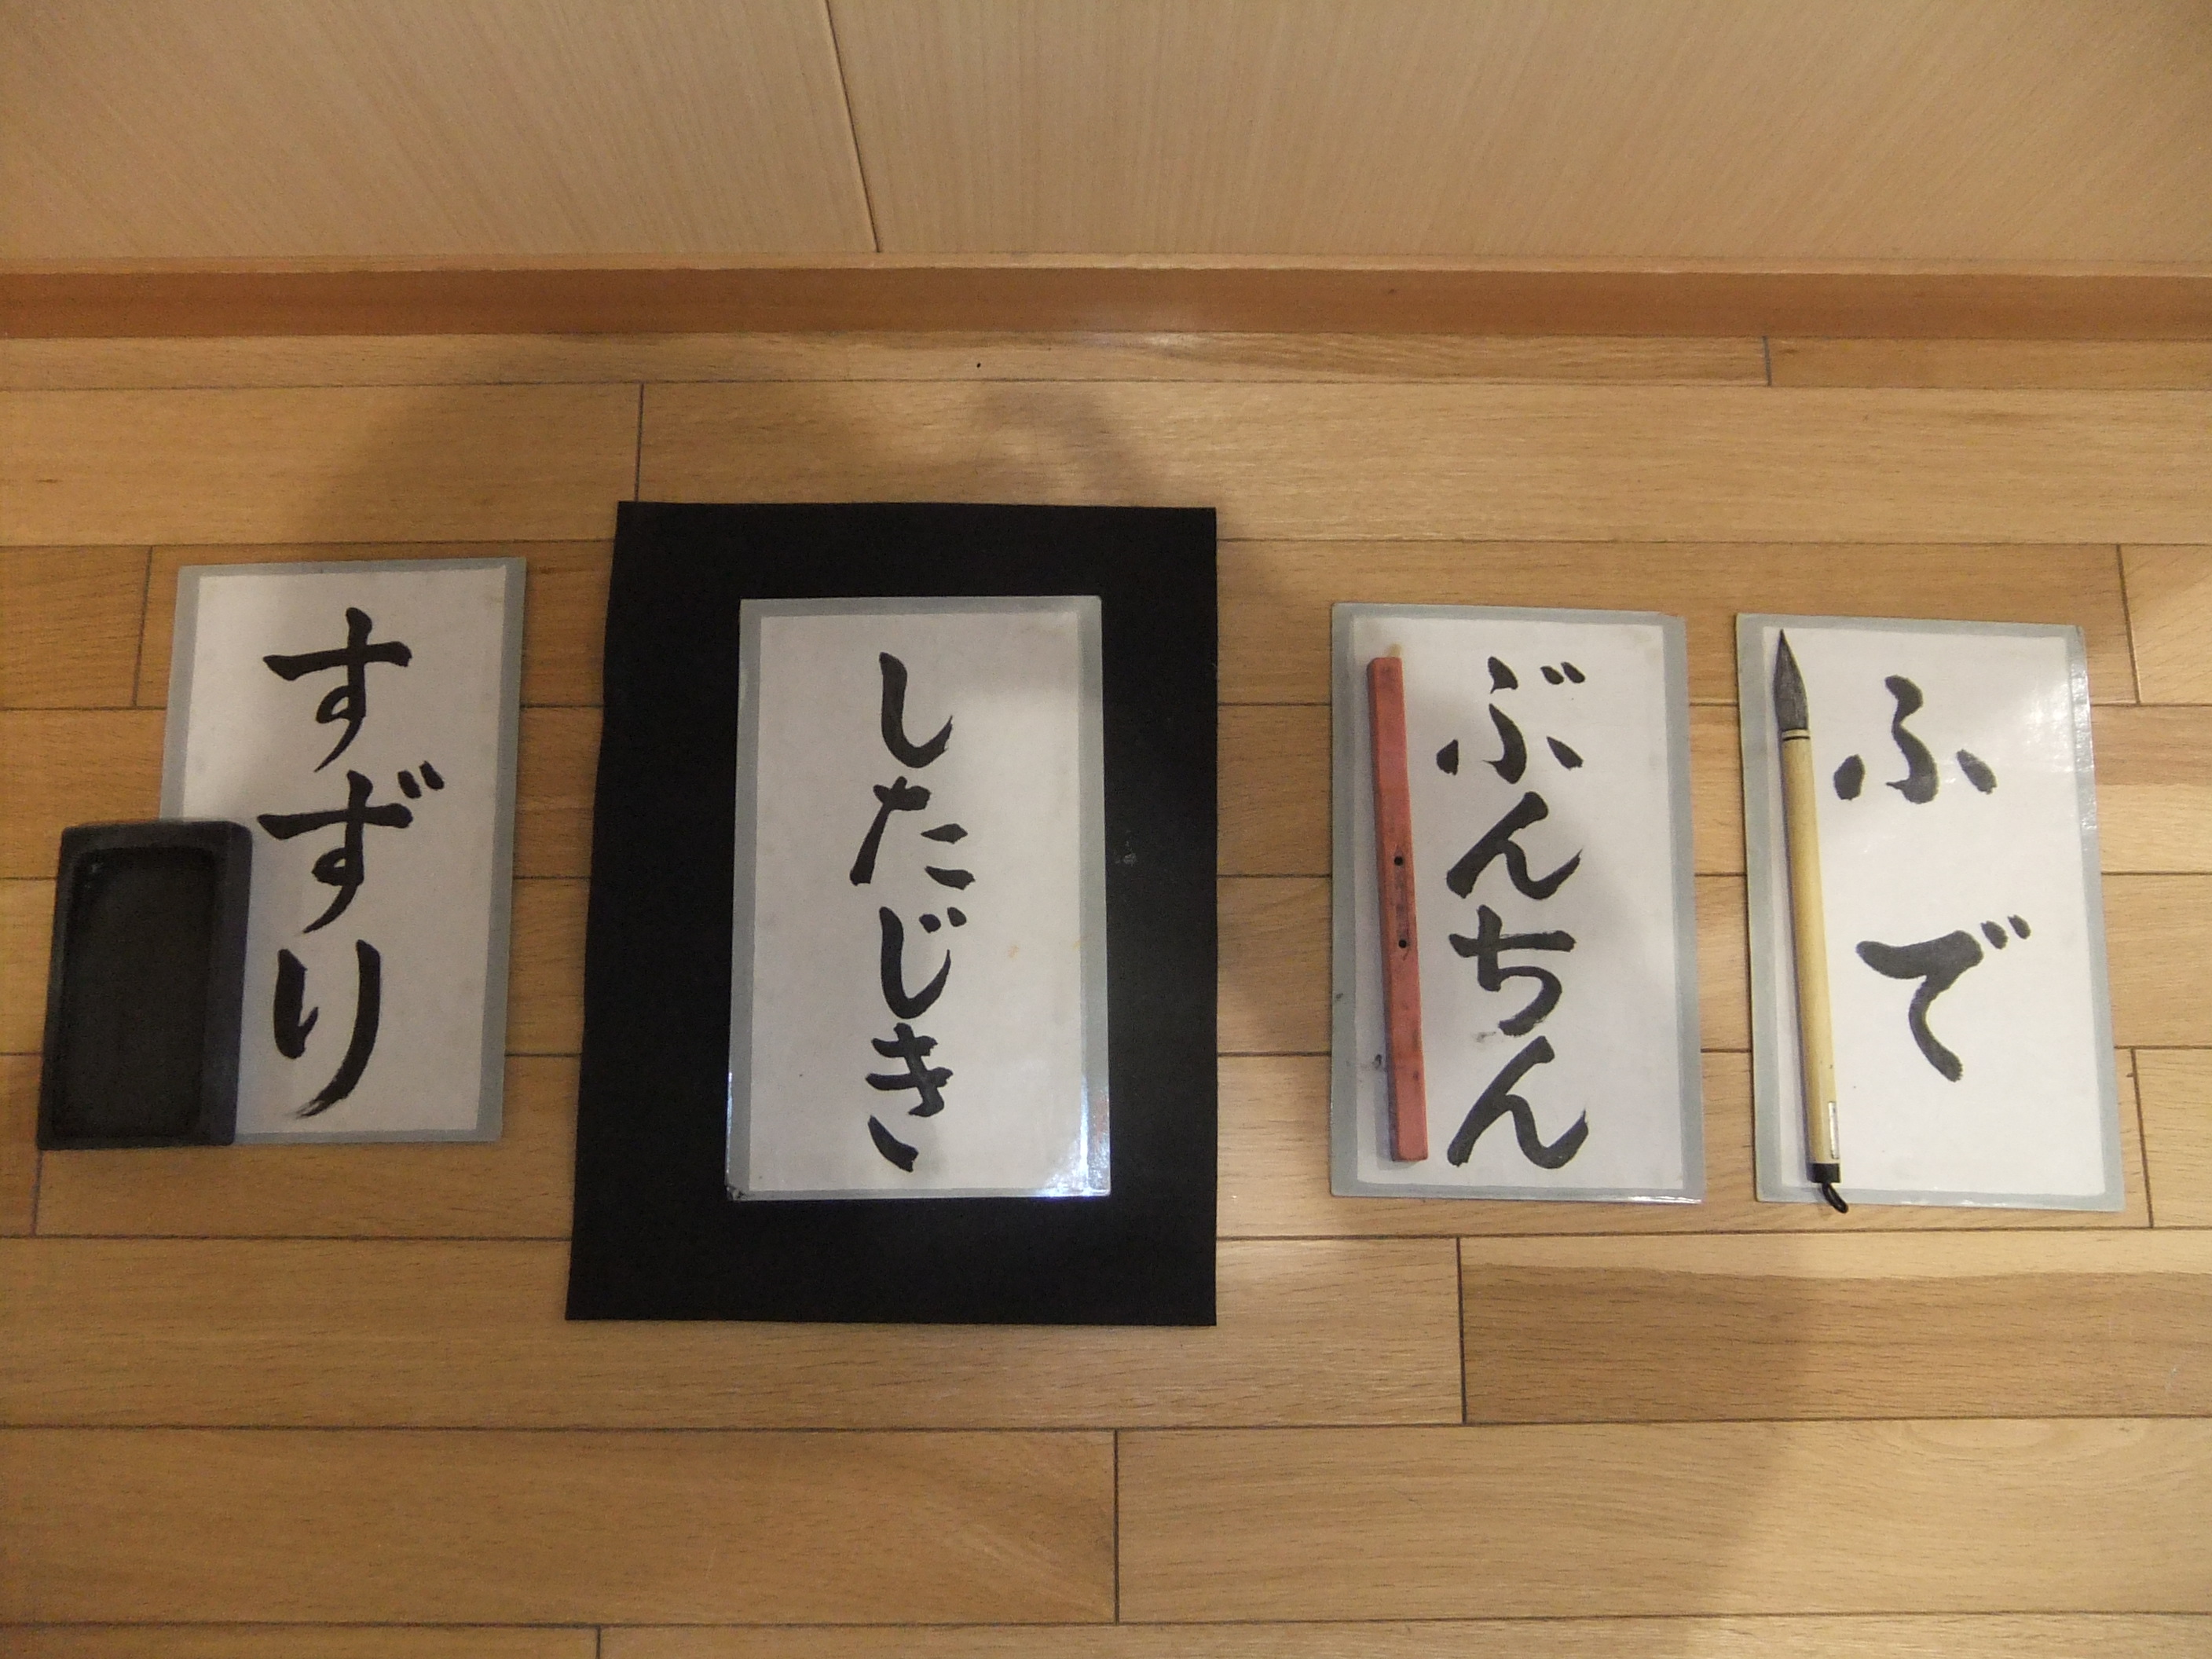 ふで
ぶんちん
したじき
すずり